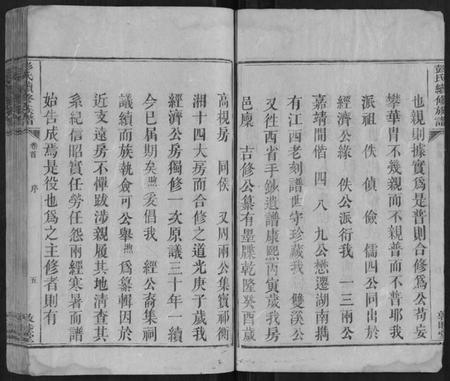 彭氏續修族譜
也親則據實為是普則合修為公苟妄
攀華胄不幾親而不親普而不普耶我
派祖　佚　偵　儉　儒四公同出於
經濟公緣　佚公派衍我　一三兩公
嘉靖間偕　四　八　九公戀遷湖南攜
有江西老刻譜世守珍藏我　雙溪公
又往西省手鈔遺譜康熙丙寅歲我房
邑廩　吉修公纂有墨牒乾隆癸酉歲
高梘房　同侯　又周兩公集賓祁衡
湘十四大房而合修之道光庚子歲我
經濟公房獨修一次原議三十年一續
今已屆期矣熙爰倡我　經公裔集祠
議續而族執僉可公舉熙為纂輯因於
近支遠房不憚跋涉親履其地清查其
系紀信昭實任勞任怨兩經寒暑而譜
始告成焉是役也為之主修者則有
彭氏續修族譜
卷首　序
五
敦睦堂